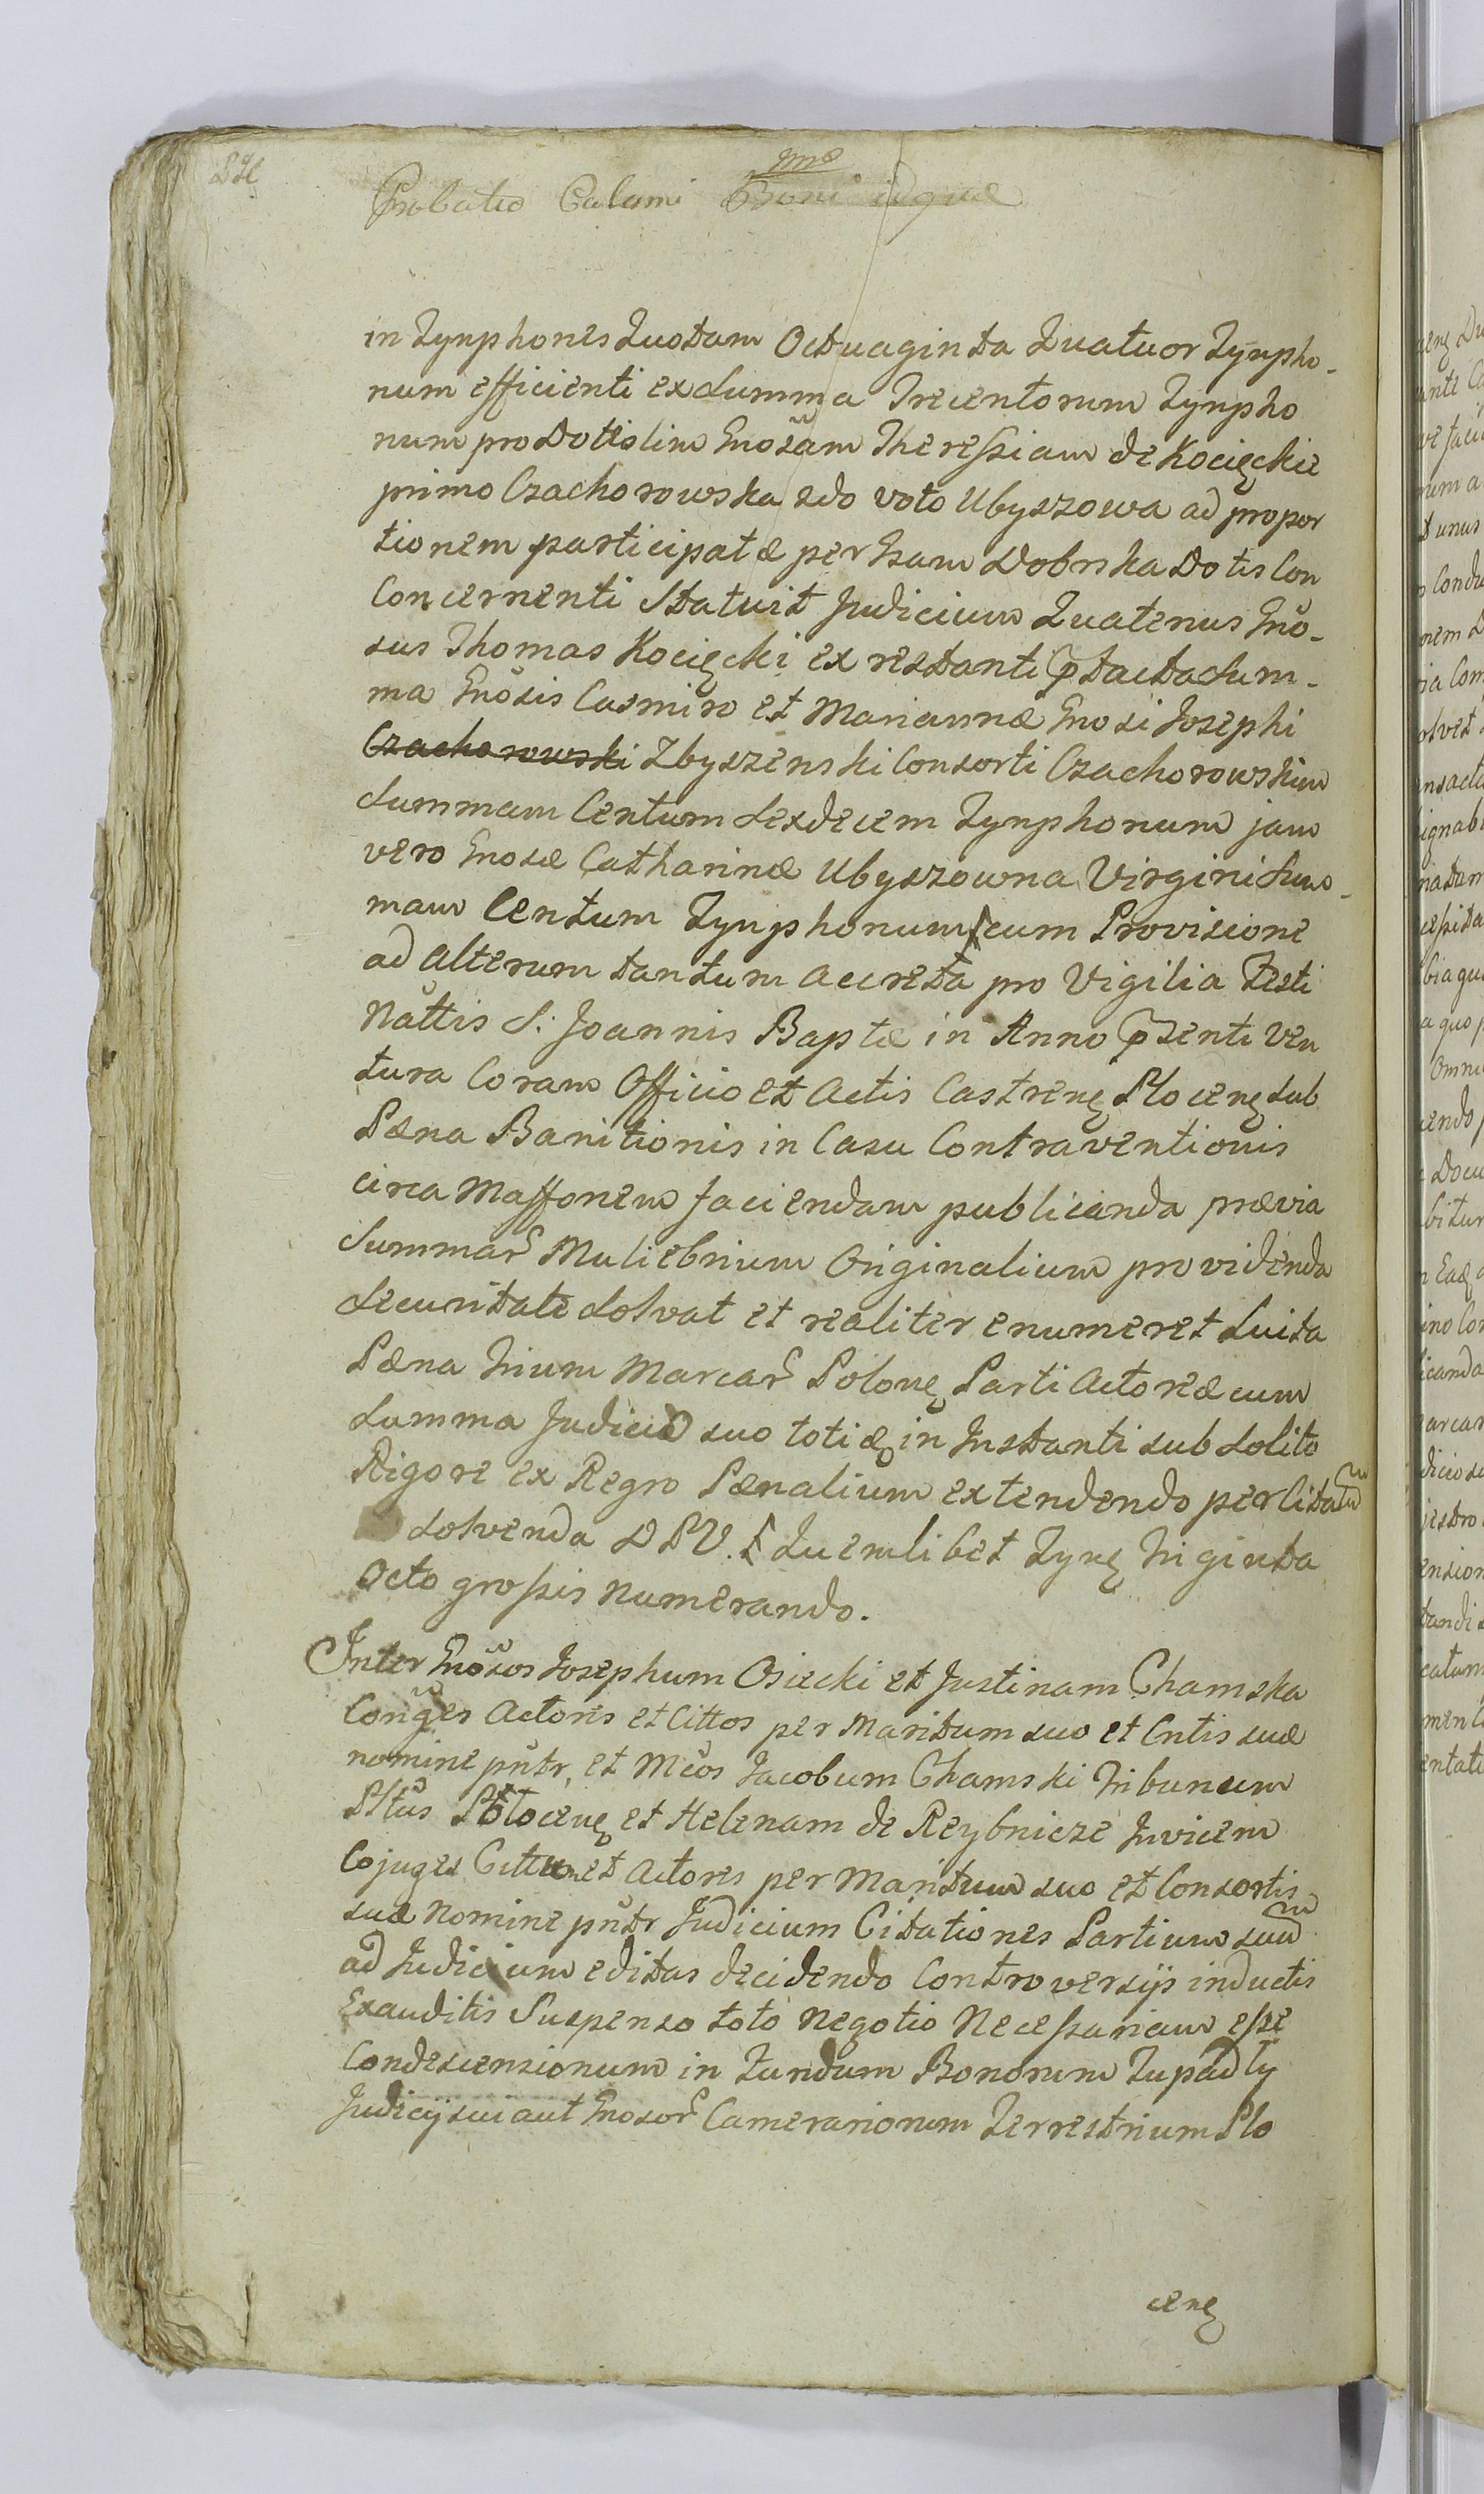 Probatio Calami Boni
in Tynphones Quotam Octuaginta Quatuor Tynpho-
num efficienti ex Summa Trecentorum Tynpho
num pro Dottis lino Gnősam Theressiam de Kocięckie
primo Czachorowska 2do voto Ubyszowa ad propor
tionem participatæ per Gsam Dobrska Dotis Con
Concernenti Statuit Judicium Quatenus Gnő-
sus Thomas Kocięcki ex restanti ptacta Sum-
ma Gnősis Casmiro et Mariannæ Gnosi Josephi
Czachorowski Zbyszenski Consorti Czachorowskim
Summam Centum Sexdecem Tynphonum jam
vero Gnosæ Catharinæ Ubyszowna Virgini Sum-
mam Centum Tynphonum cum Provisione
ad alterum tantum accreta pro Vigilia Festi
Nattis S: Joannis Baptæ in Anno psenti Ven
tura Coram Officio et Actis Castrenę Plocenę sub
Pæna Banitionis in Casu Contraventionis
circa Massonem faciendam publicanda prævia
Summar Muliebrium Originalium providenda
Securitate Solvat et realiter enumeret Luita
Pæna trium Marcar Polonę Parti Actoreæ cum
Summa Judicio suo totię in Instanti sub Solito
Rigore ex Regro Pænalium extendendo per Citatm
Solvenda D P V. Quemlibet Tynę triginta
Octo grossis numerando.
Inter Gnősos Josephum Osiecki et Justinam Chamska
Conges Actoris et Cittos per Maritum suo et Cntis suæ
nomine pńtr, et Mcos Jacobum Chamski Tribunum
Pltus Plocenę et Helenam de Reybnicze Invicem
Cojuges Citt et Actores per Maritum suo et Consortis
suæ Nomine pńtr Judicium Citationes Partium suam
ad Judicium editas decidendo Controversijs inductis
Exauditis Suspenso toto Negotio Necessariam esse
Condescensionum in Fundum Bonorum Łupadly
Judicij sui aut Gnosor Camerariorum Terrestrium Plo
cenę